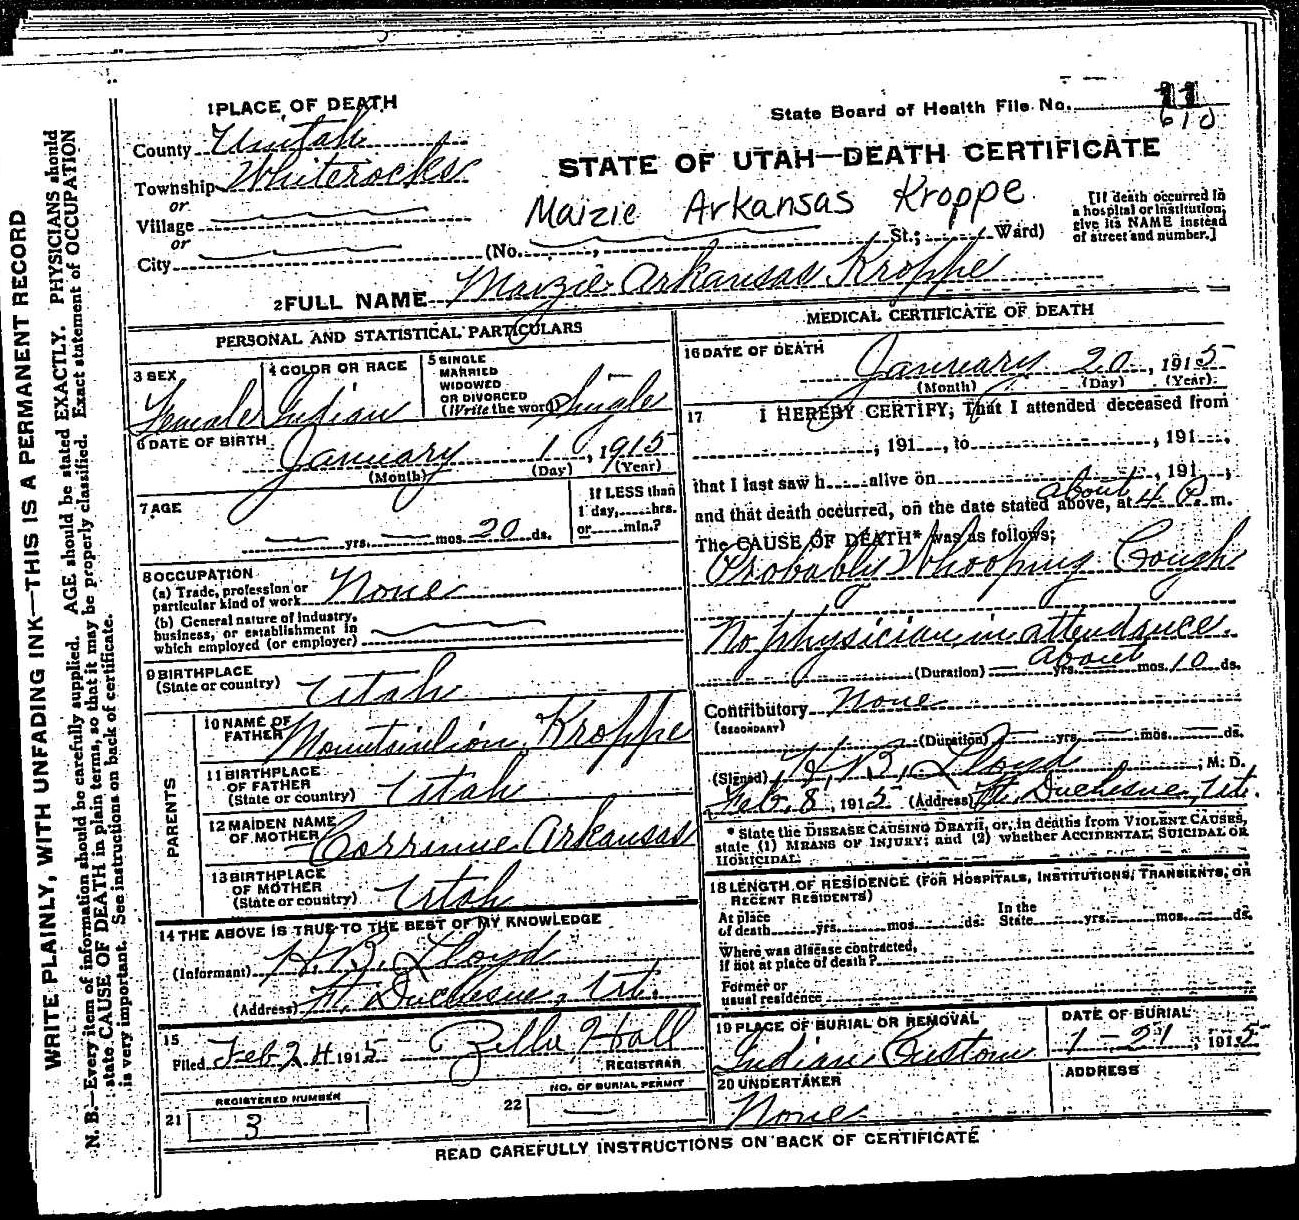 WRITE PLAINLY, WITH UNFADING INK—THIS IS A PERMANENT RECORD
N. B.—Every item of information should be carefully supplied. AGE should be stated EXACTLY. PHYSICIANS should
state CAUSE OF DEATH in plain terms, so that it may be properly classified. Exact statement of OCCUPATION
is very important. See instructions on back of certificate.
1 PLACE OF DEATH
State Board of Health File No. 11
610
County Uintah
STATE OF UTAH—DEATH CERTIFICATE
Township Whiterocks
or
Village
or
City
Maizie Arkansas Kroppe
(No. , St.; Ward)
[If death occurred in
a hospital or institution,
give its NAME instead
of street and number.]
2 FULL NAME Maizie Arkansas Kroppe
PERSONAL AND STATISTICAL PARTICULARS
3 SEX
Female
4 COLOR OR RACE
Indian
5 SINGLE
MARRIED
WIDOWED
OR DIVORCED
(Write the word) Single
6 DATE OF BIRTH
January 1, 1915
(Month) (Day) (Year)
7 AGE
— yrs. — mos. 20 ds.
If LESS than
1 day, hrs.
or min.?
8 OCCUPATION
(a) Trade, profession or
particular kind of work None
(b) General nature of industry,
business, or establishment in
which employed (or employer)
9 BIRTHPLACE
(State or country) Utah
PARENTS
10 NAME OF
FATHER Mountainlion Kroppe
11 BIRTHPLACE
OF FATHER
(State or country) Utah
12 MAIDEN NAME
OF MOTHER Corrinne Arkansas
13 BIRTHPLACE
OF MOTHER
(State or country) Utah
14 THE ABOVE IS TRUE TO THE BEST OF MY KNOWLEDGE
(Informant) H. B. Lloyd
(Address) Ft. Duchesne, Ut.
15
Filed Feb 24 1915 Zella Hall
REGISTRAR
REGISTERED NUMBER
21 3
NO. OF BURIAL PERMIT
22 —
MEDICAL CERTIFICATE OF DEATH
16 DATE OF DEATH
January 20, 1915
(Month) (Day) (Year)
17 I HEREBY CERTIFY, That I attended deceased from
, 191 , to , 191 ,
that I last saw h alive on , 191 ,
and that death occurred, on the date stated above, at about 4 P. m.
The CAUSE OF DEATH* was as follows:
Probably Whooping Cough
No physician in attendance.
(Duration) — yrs. about mos. 10 ds.
Contributory None
(SECONDARY)
(Duration) — yrs. — mos. — ds.
(Signed) H. B. Lloyd, M. D.
Feb. 8, 1915 (Address) Ft. Duchesne, Ut.
* State the DISEASE CAUSING DEATH, or, in deaths from VIOLENT CAUSES,
state (1) MEANS OF INJURY; and (2) whether ACCIDENTAL, SUICIDAL OR
HOMICIDAL.
18 LENGTH OF RESIDENCE (FOR HOSPITALS, INSTITUTIONS, TRANSIENTS, OR
RECENT RESIDENTS)
At place
of death yrs. mos. ds.
In the
State yrs. mos. ds.
Where was disease contracted,
if not at place of death?
Former or
usual residence
19 PLACE OF BURIAL OR REMOVAL
Indian Custom
DATE OF BURIAL
1—21, 1915
20 UNDERTAKER
None
ADDRESS
READ CAREFULLY INSTRUCTIONS ON BACK OF CERTIFICATE